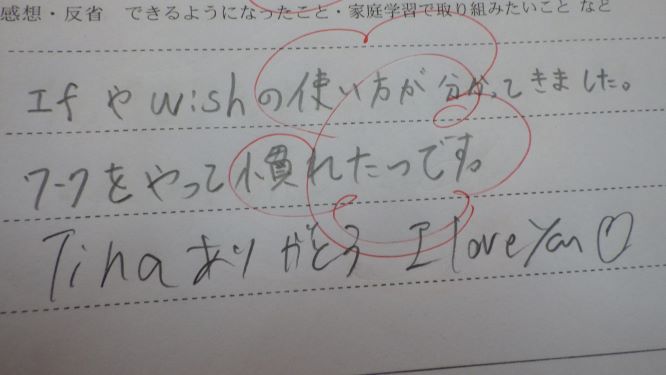 感想・反省 できるようになったこと・家庭学習で取り組みたいこと など
Ifやwishの使い方が分かってきました。
ワークをやって慣れたっです。
Tinaありがとう I love You♡